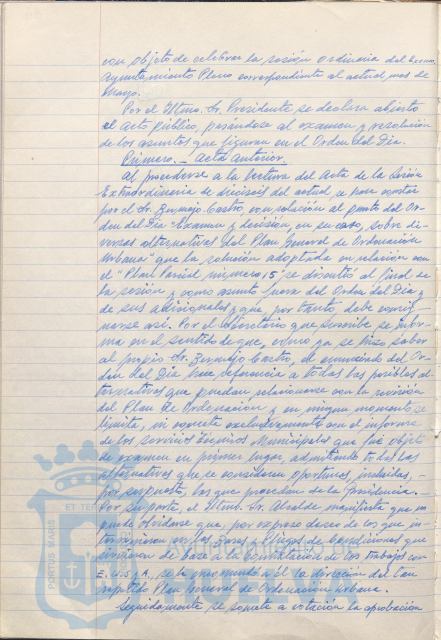 con objeto de celebrar la sesión ordinaria del Excmo.
Ayuntamiento Pleno correspondiente al actual mes de
Mayo.
Por el Iltmo. Sr. Presidente se declara abierto
el acto público, pasándose al examen y resolución
de los asuntos que figuran en el Orden del Día.
Primero.- Acta anterior.
Al procederse a la lectura del Acta de la sesión
Extraordinaria de dieciséis del actual, se hace constar
por el Sr. Bermejo Castro, con relación al punto del Or-
den del Día "Examen y decisión, en su caso, sobre di-
versas alternativas del Plan General de Ordenación
Urbana" que la solución adoptada en relación con
el "Plan Parcial número 15" se discutió al final de
la sesión y como asunto fuera del Orden del Día y
de sus adicionales y que, por tanto, debe consig-
narse así. Por el Secretario que suscribe se infor-
ma en el sentido de que, como ya se hizo saber
al propio Sr. Bermejo Castro, el enunciado del Or-
den del Día hace referencia a todas las posibles al-
ternativas que puedan relacionarse con la revisión
del Plan de Ordenación y en ningún momento se
limita, ni concreta exclusivamente con el informe
de los servicios Técnicos Municipales que fué objeto
de examen en primer lugar, admitiendo todas las
alternativas que se consideren oportunas, incluidas,-
por supuesto, las que procedan de la Presidencia.-
Por su parte, el Iltmo. Sr. Alcalde manifiesta que no
puede olvidarse que, por expreso deseo de los que in-
tervinieron en las Bases y Pliegos de Condiciones que
sirvieron de base a la contratación de los trabajos con
se le encomendó a él la dirección del tan
repetido Plan General de Ordenación Urbana.
Seguidamente se somete a votación la aprobación
PORTUS MARIS
ET TERRA